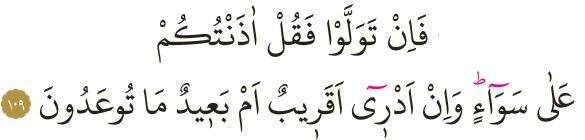 فَاِنْ تَوَلَّوْا فَقُلْ اٰذَنْتُكُمْ
عَلٰى سَوَٓاءٍۜ وَاِنْ اَدْر۪ٓي اَقَر۪يبٌ اَمْ بَع۪يدٌ مَا تُوعَدُونَ ﴿١٠٩﴾